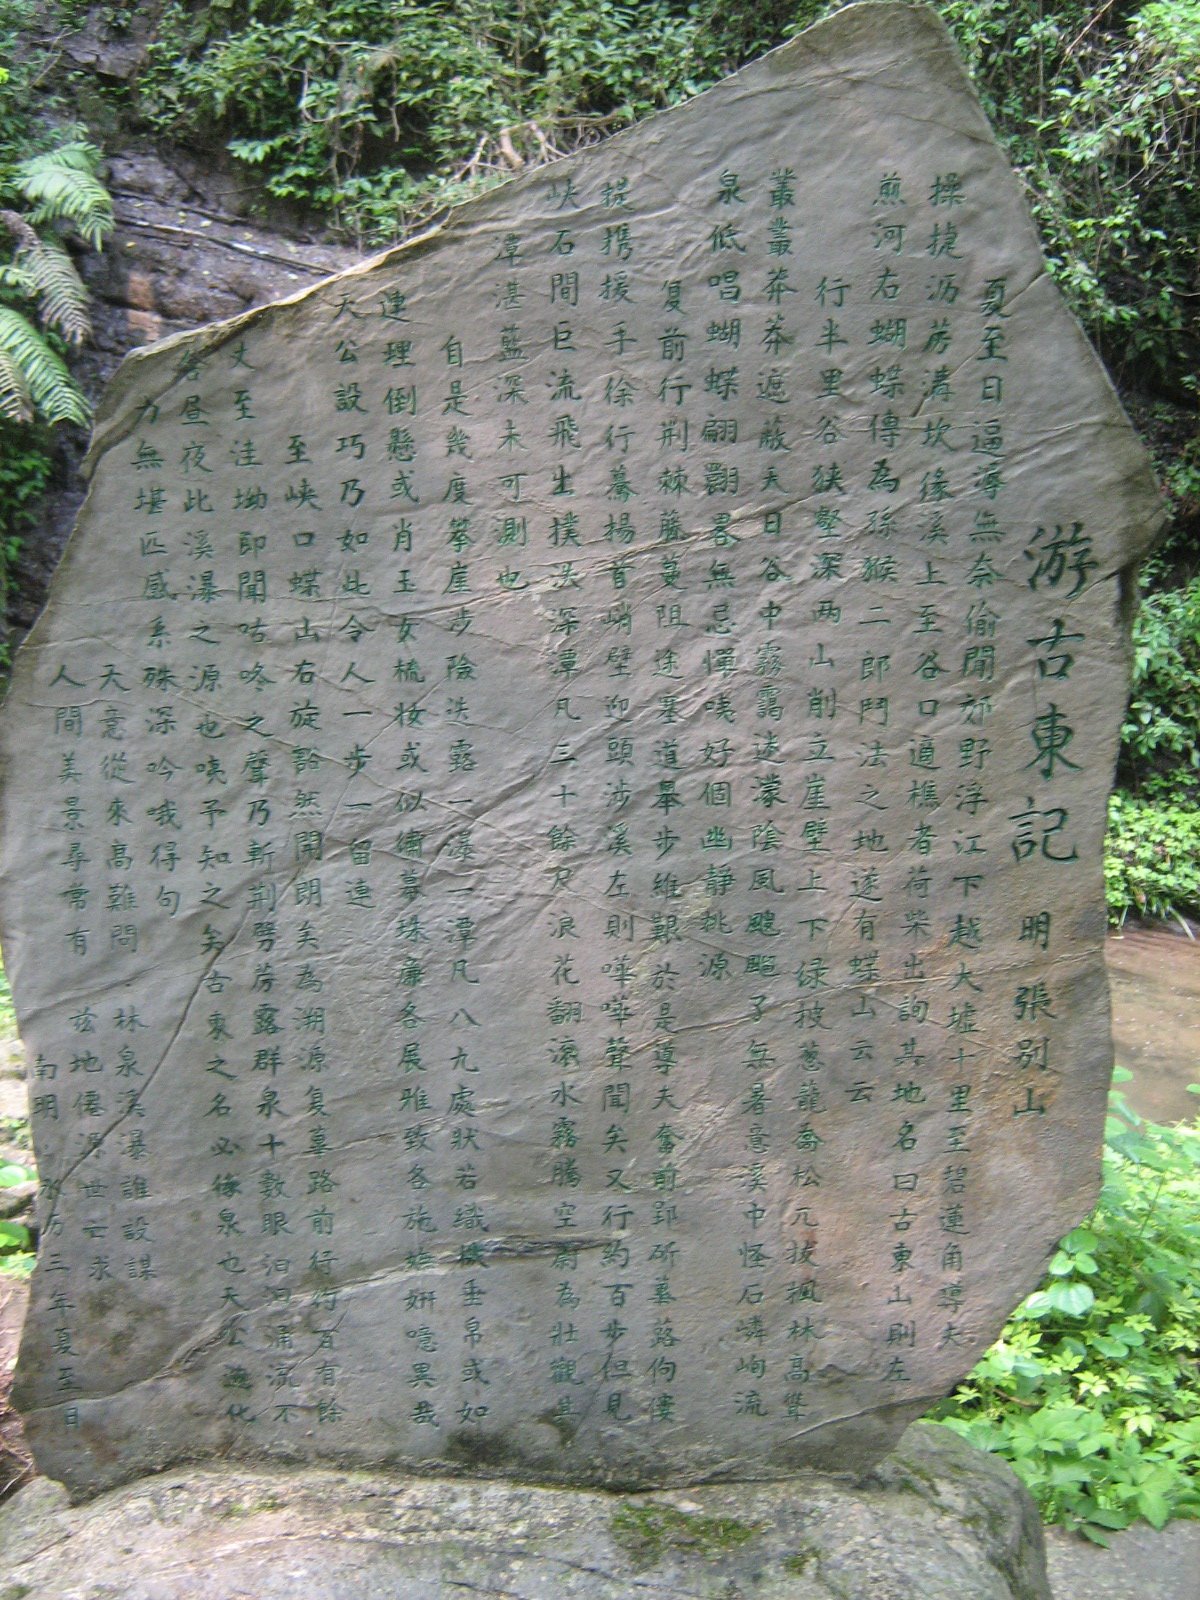 游古東記 明張別山
夏至日逼溽無奈偷閒郊野浮江下越大墟十里至碧蓮角導夫
操捷沥荿溝坎缘溪上至谷口適樵者荷柴出詢其地名曰古東山則左
煎河右蝴蝶傳為孫猴二郎鬥法之地遂有蝶山云云
行半里谷狹壑深两山削立崖壁上下绿披蔥蘢喬松兀拔楓林高聳
叢叢莽莽遮蔽天日谷中霧靄迷濛陰風颼颼了無暑意溪中怪石嶙峋流
泉低唱蝴蝶翩翾畧無忌憚咦好個幽靜桃源
复前行荆棘藤蔓阻途塞道舉步維艱於是導夫奮前郢斫蓽蕗佝僂
提携援手徐行驀揚首峭壁迎頭涉溪左則嘩嘩聲聞矣又行約百步但見
峽石間巨流飛出撲洪深潭凡三十餘尺浪花翻滾水霧騰空蔚為壯觀其
潭湛藍深未可測也
自是幾度攀崖步險迭露一瀑一潭凡八九處狀若織機垂帛或如
連理倒懸或肖玉女梳妆或似繡幕珠廉各展雅致各施嫵妍噫異哉
天公設巧乃如此令人一步一留連
至峽口蝶山右旋豁然開朗矣為溯源复蓽路前行行百有餘
丈至洼坳即聞咕咚之聲乃斬荆劈荿露群泉十數眼汩汩涌流不
舍昼夜此溪瀑之源也咦予知之矣古東之名必缘泉也天公造化
力無堪匹感系殊深吟哦得句
天意從來高難問 林泉溪瀑誰設謀
人間美景尋常有 兹地僊源世亡求
南明永历三年夏至日